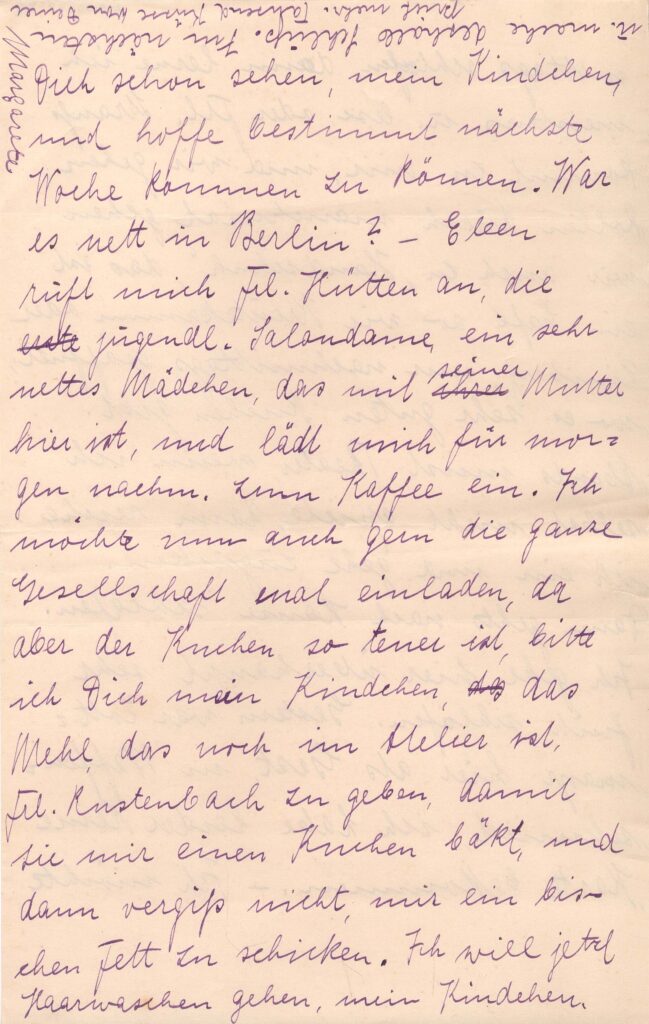 Dich schon sehen, mein Kindchen,
und hoffe bestimmt nächste
Woche kommen zu können. War
es nett in Berlin? – Eben
ruft mich Frl. Hutten an, die
erste jugendl. Salondame, ein sehr
nettes Mädchen, das mit ihrer seiner Mutter
hier ist, und lädt mich für mor=
gen nachm. zum Kaffee ein. Ich
möchte nun auch gern die ganze
Gesellschaft mal einladen, da
aber der Kuchen so teuer ist, bitte
ich Dich mein Kindchen, das das
Mehl, das noch im Atelier ist,
Frl. Kustenbach zu geben, damit
sie mir einen Kuchen bäkt, und
dann vergiß nicht, mir ein bis–
chen Fett zu schicken. Ich will jetzt
Haarwaschen gehen, mein Kindchen,
u. mache deshalb Schluß. Im nächsten
Brief mehr. Tausend Küsse von Deiner
Margarete